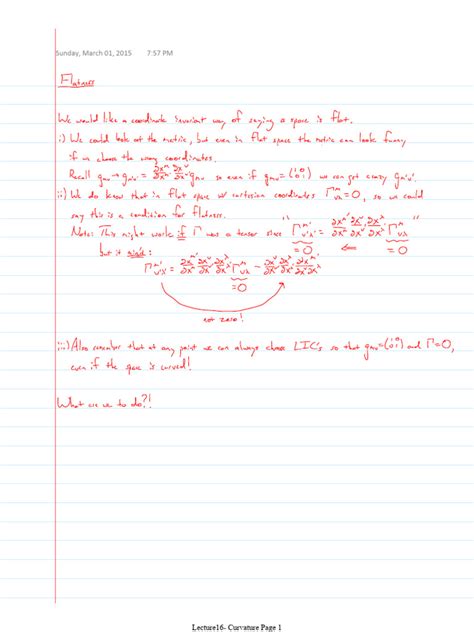 Sunday, March 01, 2015 7:57 PM
Flatness
We would like a coordinate invariant way of saying a space is flat.
i) We could look at the metric, but even in flat space the metric can look funny
if we choose the wrong coordinates.
Recall gμν → gμ'ν' = ∂x^μ/∂x^μ' ∂x^ν/∂x^ν' gμν so even if gμν = (1 0 0 1) we can get crazy gμ'ν'.
ii) We do know that in flat space w/ cartesian coordinates Γ^μ_νλ = 0, so we could
say this is a condition for flatness.
Note: This might work if Γ was a tensor since "Γ^μ'_ν'λ' = ∂x^μ'/∂x^μ ∂x^ν/∂x^ν' ∂x^λ/∂x^λ' Γ^μ_νλ"
=0 ⇐ =0
but it ain't:
Γ^μ'_ν'λ' = ∂x^μ'/∂x^μ ∂x^ν/∂x^ν' ∂x^λ/∂x^λ' Γ^μ_νλ - ∂x^ν/∂x^ν' ∂x^λ/∂x^λ' ∂²x^μ'/∂x^ν∂x^λ
=0
not zero!
iii) Also remember that at any point we can always choose LIC's so that gμν = (1 0 0 1) and Γ=0,
even if the space is curved!
What are we to do?!
Lecture16- Curvature Page 1